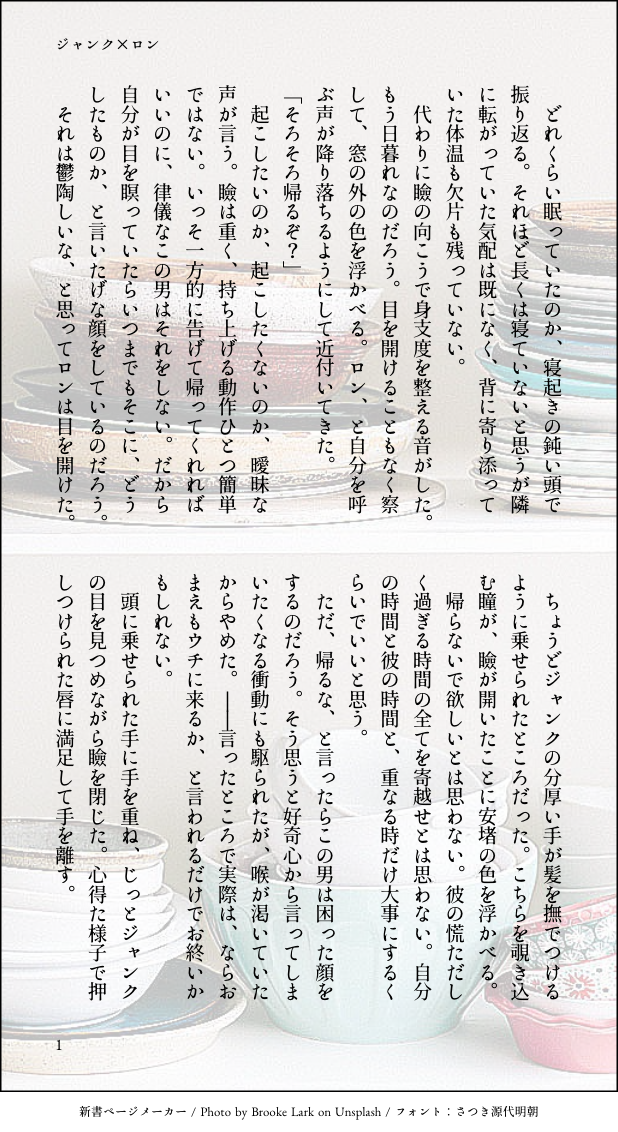 ジャンク×ロン
　どれくらい眠っていたのか、寝起きの鈍い頭で
振り返る。それほど長くは寝ていないと思うが隣
に転がっていた気配は既になく、背に寄り添って
いた体温も欠片も残っていない。
　代わりに瞼の向こうで身支度を整える音がした。
もう日暮れなのだろう。目を開けることもなく察
して、窓の外の色を浮かべる。ロン、と自分を呼
ぶ声が降り落ちるようにして近付いてきた。
「そろそろ帰るぞ？」
　起こしたいのか、起こしたくないのか、曖昧な
声が言う。瞼は重く、持ち上げる動作ひとつ簡単
ではない。いっそ一方的に告げて帰ってくれれば
いいのに、律儀なこの男はそれをしない。だから
自分が目を瞑っていたらいつまでもそこに、どう
したものか、と言いたげな顔をしているのだろう。
　それは鬱陶しいな、と思ってロンは目を開けた。
　ちょうどジャンクの分厚い手が髪を撫でつける
ように乗せられたところだった。こちらを覗き込
む瞳が、瞼が開いたことに安堵の色を浮かべる。
　帰らないで欲しいとは思わない。彼の慌ただし
く過ぎる時間の全てを寄越せとは思わない。自分
の時間と彼の時間と、重なる時だけ大事にするく
らいでいいと思う。
　ただ、帰るな、と言ったらこの男は困った顔を
するのだろう。そう思うと好奇心から言ってしま
いたくなる衝動にも駆られたが、喉が渇いていた
からやめた。――言ったところで実際は、ならお
まえもウチに来るか、と言われるだけでお終いか
もしれない。
　頭に乗せられた手に手を重ね、じっとジャンク
の目を見つめながら瞼を閉じた。心得た様子で押
しつけられた唇に満足して手を離す。
1
新書ページメーカー / Photo by Brooke Lark on Unsplash / フォント：さつき源代明朝